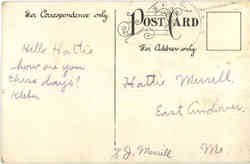 For Correspondence only.
POST CARD
For Address only.
Hello Hattie
how are you
these days?
Hattie Merrill,
East Andover,
Me